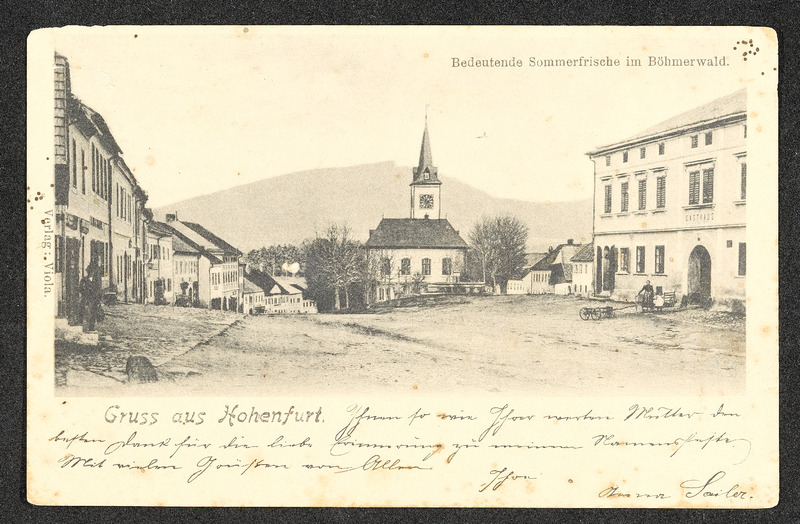 Bedeutende Sommerfrische im Böhmerwald.
GASTHAUS
Verlag: Viola.
Gruss aus Hohenfurt.
Ihnen so wie Ihrer werten Mutter den
besten Dank für die liebe Erinnerung zu meinem Namensfeste
Mit vielen Grüssen von Allen
Ihre
Anna Sailer.